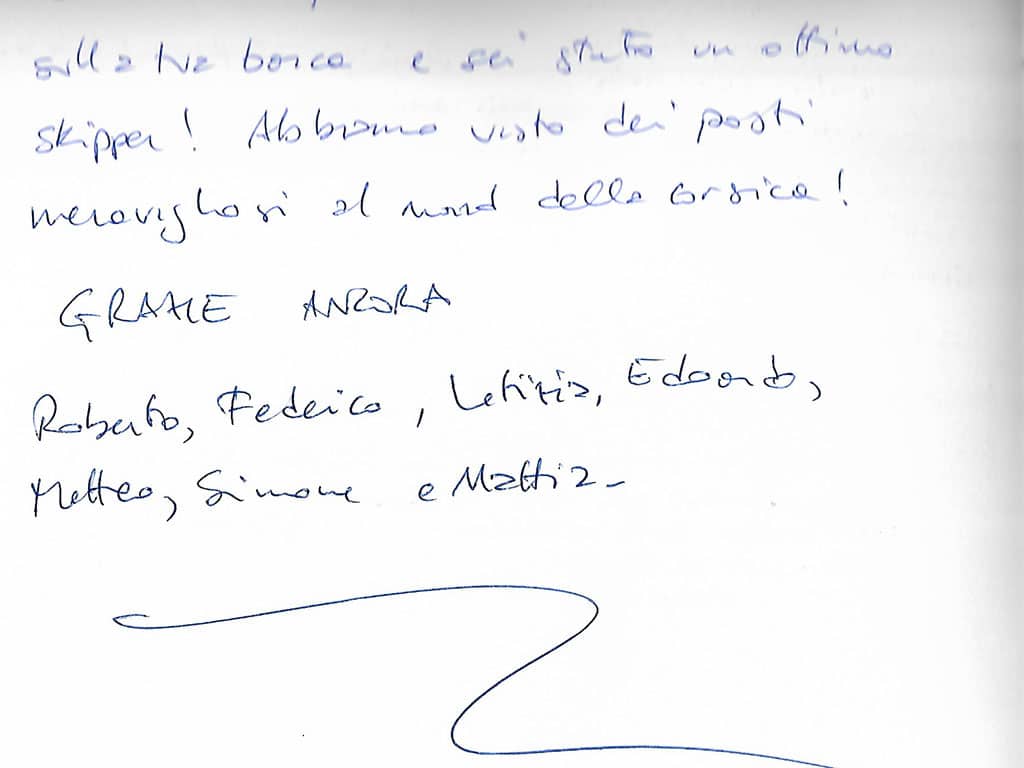 sulla tua barca e sei stato un ottimo
skipper! Abbiamo visto dei posti
meravigliosi al nord della Corsica!
GRAZIE ANCORA
Roberto, Federico, Letizia, Edoardo,
Matteo, Simone e Mattia-